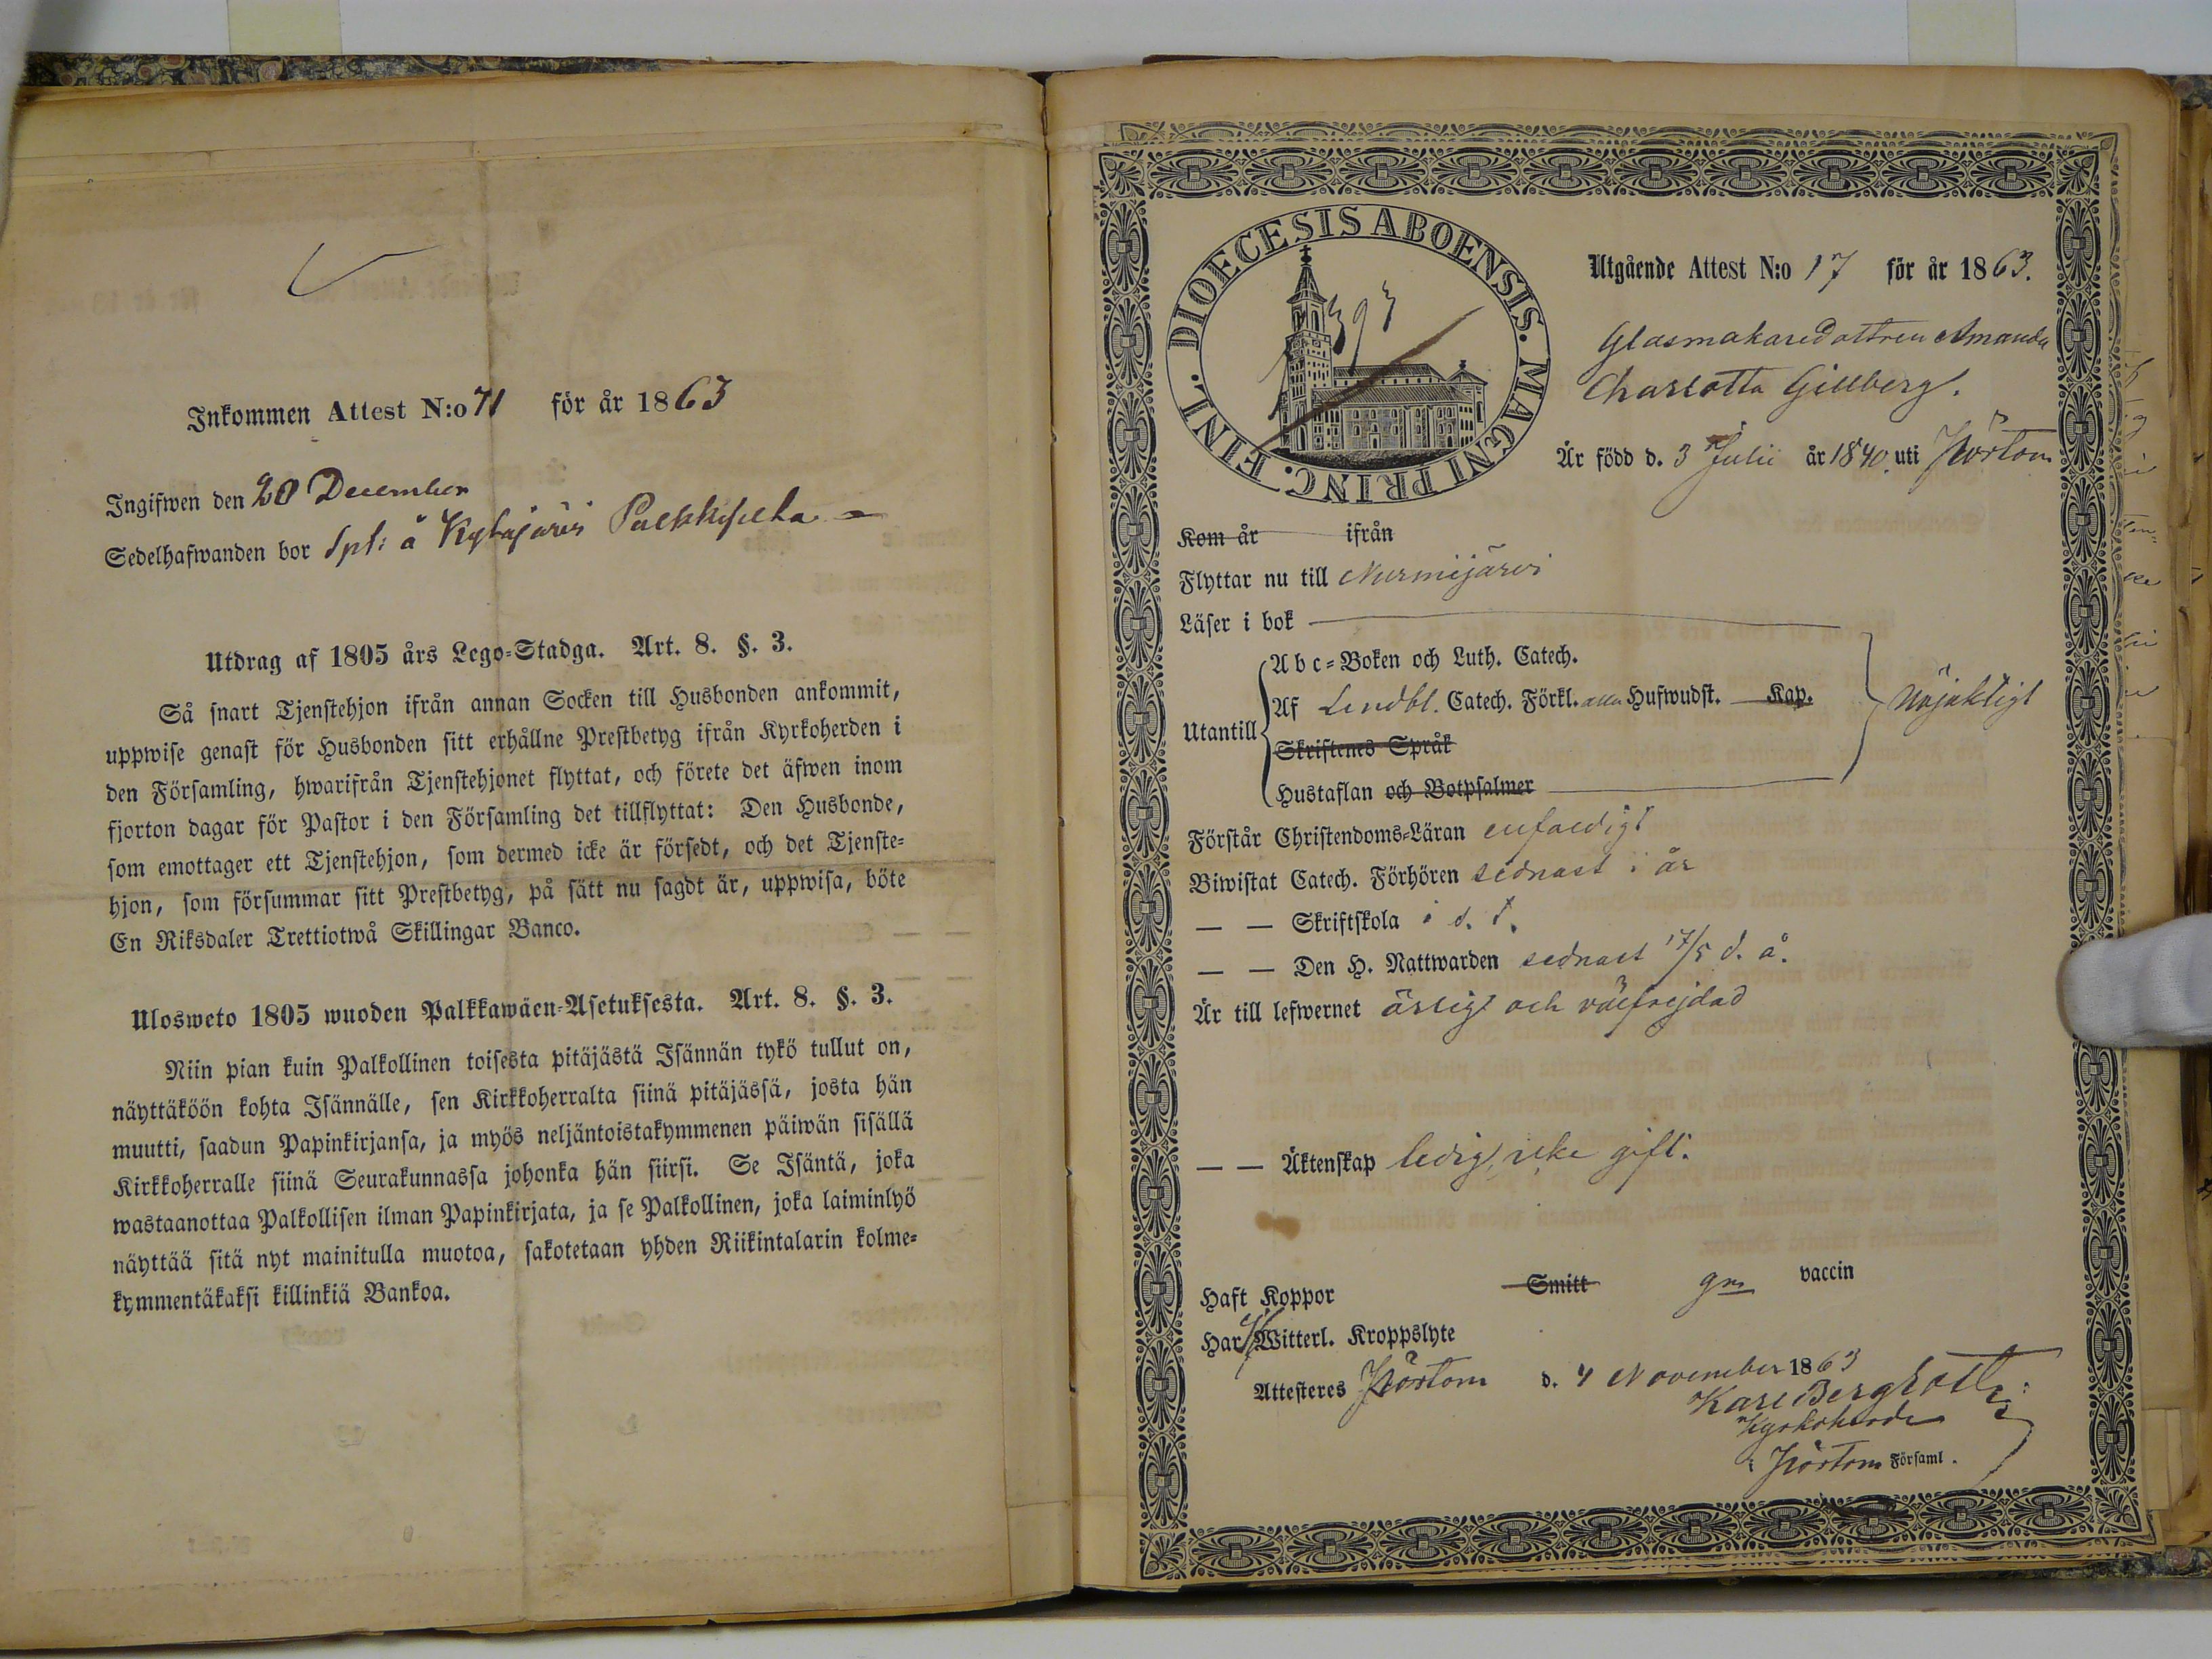 Inkommen Attest N:o 71 för år 1863
Ingifwen den 20 December
Sedelhafwanden bor Spl: å Kyläjärvi
Utdrag af 1805 års Lego-Stadga. Art. 8. §. 3.
Så snart Tjenstehjon ifrån annan Socken till Husbonden ankommit,
uppwise genast för Husbonden sitt erhållne Prestbetyg ifrån Kyrkoherden i
den Församling, hwarifrån Tjenstehjonet flyttat, och förete det äfwen inom
fjorton dagar för Pastor i den Församling det tillflyttat: Den Husbonde,
som emottager ett Tjenstehjon, som dermed icke är försedt, och det Tjenste-
hjon, som försummar sitt Prestbetyg, på sätt nu sagdt är, uppwisa, böte
En Riksdaler Trettiotwå Skillingar Banco.
Ulosweto 1805 wuoden Palkkawäen-Asetuksesta. Art. 8. §. 3.
Niin pian kuin Palkollinen toisesta pitäjästä Isännän tykö tullut on,
näyttäköön kohta Isännälle, sen Kirkkoherralta siinä pitäjässä, josta hän
muutti, saadun Papinkirjansa, ja myös neljäntoistakymmenen päiwän sisällä
Kirkkoherralle siinä Seurakunnassa johonka hän siirsi. Se Isäntä, joka
wastaanottaa Palkollisen ilman Papinkirjata, ja se Palkollinen, joka laiminlyö
näyttää sitä nyt mainitulla muotoa, sakotetaan yhden Riikintalarin kolme-
kymmentäkaksi killinkiä Bankoa.
DIOECESIS ABOENSIS. MAGNI PRINC. FINL.
397
Utgående Attest N:o 17 för år 1863.
Glasmakaredottren Amanda
Charlotta Gillberg.
Är född d. 3 Julii år 1840. uti Pörtom
Kom år ifrån
Flyttar nu till Nurmijärvi
Läser i bok
Utantill
Abc-Boken och Luth. Catech.
Af Lindbl. Catech. Förkl. alla Hufwudst. Kap.
Skriftenes Språk
Hustaflan och Botpsalmer
Nöjaktigt
Förstår Christendoms-Läran enfaldigt
Biwistat Catech. Förhören sednast i år
— — Skriftskola i d. t.
— — Den H. Nattwarden sednast 17/5 d. å.
Är till lefwernet ärligt och välfrejdad
— — Äktenskap ledig, icke gift.
Haft Koppor Smitt gm vaccin
Har Witterl. Kroppslyte
Attesteres Pörtom d. 4 November 1863
Karl Berghäll
Kyrkoherde
i Pörtom Församl.